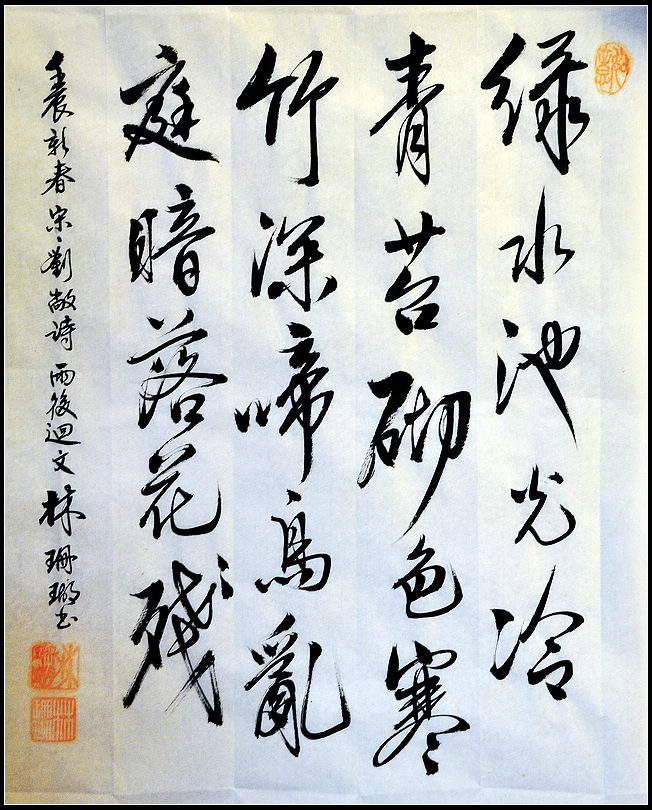 绿水池光冷
青苔砌色寒
竹深啼鳥亂
庭暗落花残
壬辰新春宋劉敞詩雨後迴文林珊璇书